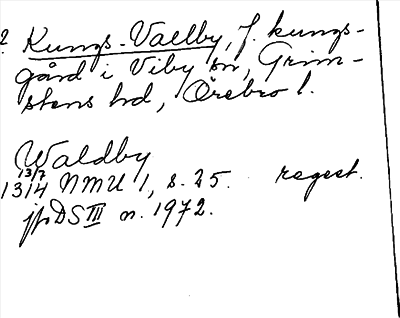 2 Kungs-Vallby, f. kungs-
gård i Viby sn, Grim-
stens hd, Örebro l.
Waldby
13/7
1314 NMU 1, s. 25. regest.
jfr DS III n. 1972.